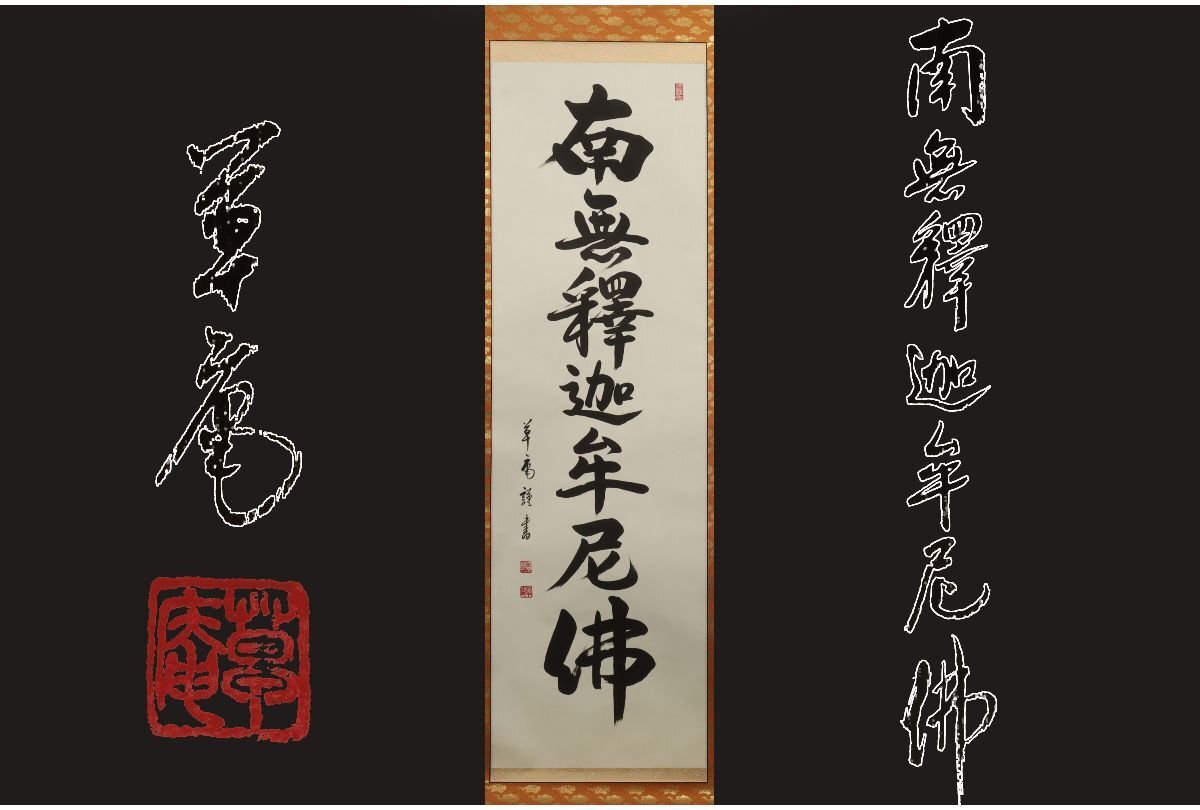 南無釋迦牟尼佛
南無釋迦牟尼佛
草庵謹書
草庵
草庵